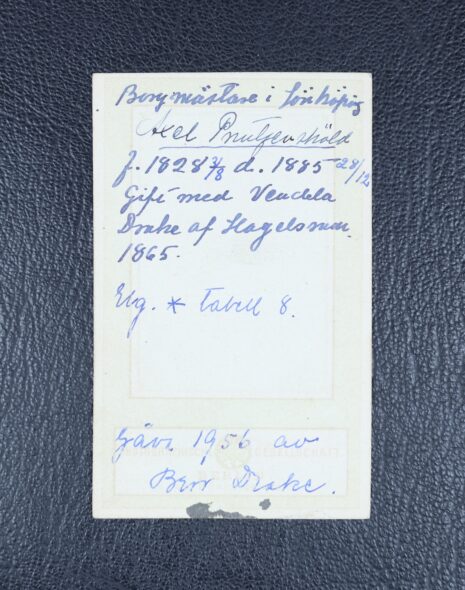 Borgmästare i Jönköping
Axel Prutzensköld
f. 1828 3/8 d. 1885 28/12
Gift med Vendela
Drake af Hagelsrum
1865.
Elg. * tabell 8.
Gåva 1956 av
Drake.
GESELLSCHAFT